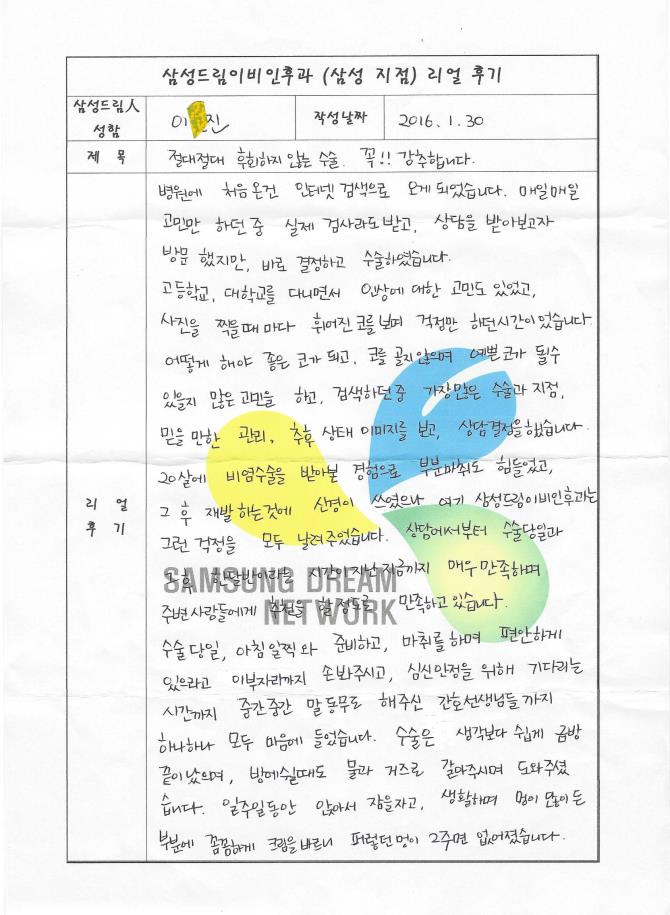 삼성드림이비인후과 (삼성 지점) 리얼 후기
삼성드림人 성함
이 진
작성날짜
2016. 1. 30
제 목
절대절대 후회하지 않는 수술. 꼭!! 강추합니다.
리 얼 후 기
병원에 처음 온건 인터넷 검색으로 오게 되었습니다. 매일매일
고민만 하던 중 실제 검사라도 받고, 상담을 받아보고자
방문 했지만, 바로 결정하고 수술하였습니다.
고등학교, 대학교를 다니면서 인상에 대한 고민도 있었고,
사진을 찍을때 마다 휘어진 코를 보며 걱정만 하던시간이었습니다.
어떻게 해야 좋은 코가 되고, 코를 골지않으며 예쁜코가 될수
있을지 많은 고민을 하고, 검색하던 중 가장많은 수술과 지점,
믿을 만한 관리, 추후 상태 이미지를 보고, 상담결정을했습니다.
20살에 비염수술을 받아본 경험으로 부분마취도 힘들었고,
그 후 재발하는것에 신경이 쓰였으나 여기 삼성드림이비인후과는
그런 걱정을 모두 날려주었습니다. 상담에서부터 수술당일과
그 후 한달반이라는 시간이 지난 지금까지 매우 만족하며
SAMSUNG DREAM
NETWORK
주변사람들에게 추천을 할정도로 만족하고 있습니다.
수술 당일, 아침 일찍 와 준비하고, 마취를 하며 편안하게
있으라고 이부자리까지 손봐주시고, 심신안정을 위해 기다리는
시간까지 중간중간 말동무로 해주신 간호선생님들 까지
하나하나 모두 마음에 들었습니다. 수술은 생각보다 쉽게 금방
끝이났으며, 방에쉴때도 물과 거즈로 갈아주시며 도와주셨
습니다. 일주일동안 앉아서 잠을자고, 생활하며 멍이 많이 든
부분에 꼼꼼하게 크림을바르니 퍼렇던멍이 2주면 없어졌습니다.